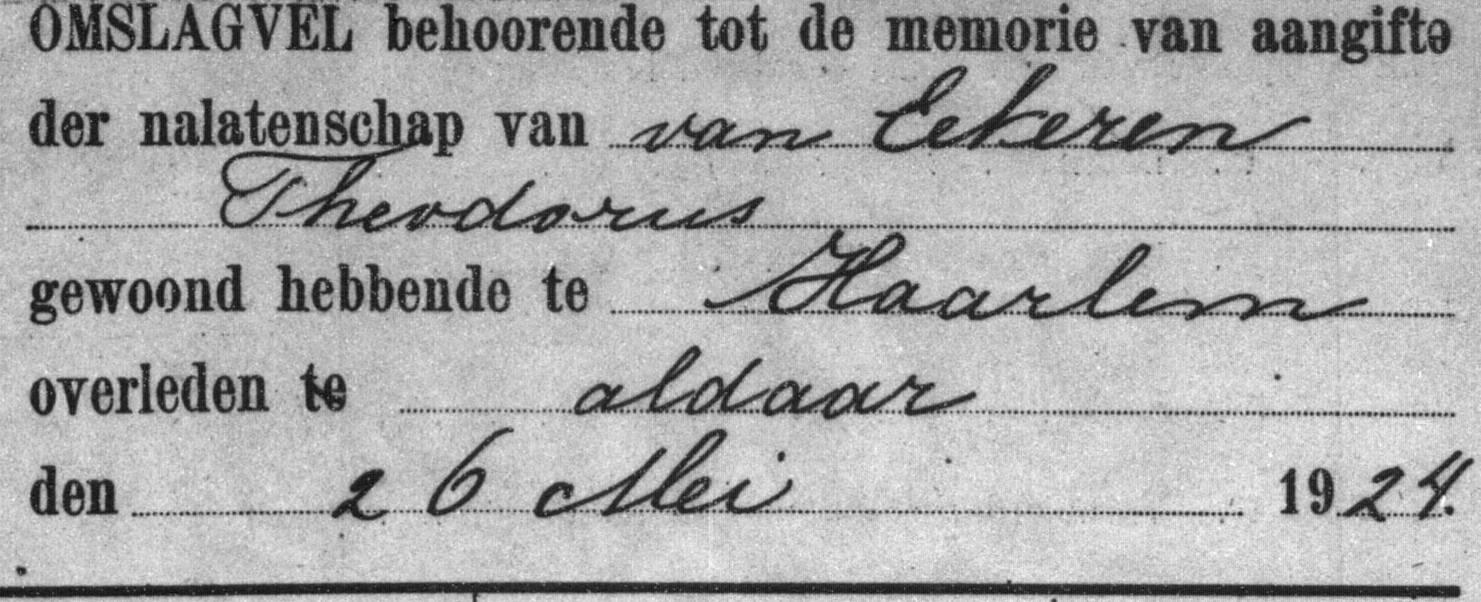 OMSLAGVEL behoorende tot de memorie van aangifte
der nalatenschap van van Eekeren
Theodorus
gewoond hebbende te Haarlem
overleden te aldaar
den 26 Mei 1924.